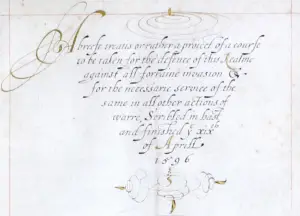 A breefe treatis or rather a proiect of a course
to be taken for the defence of this Realme
against all forraine invasion &
for the necessarie service of the
same in all other actions of
warre, Scribled in hast
and finished yᵉ xixᵗʰ
of Aprill
1596